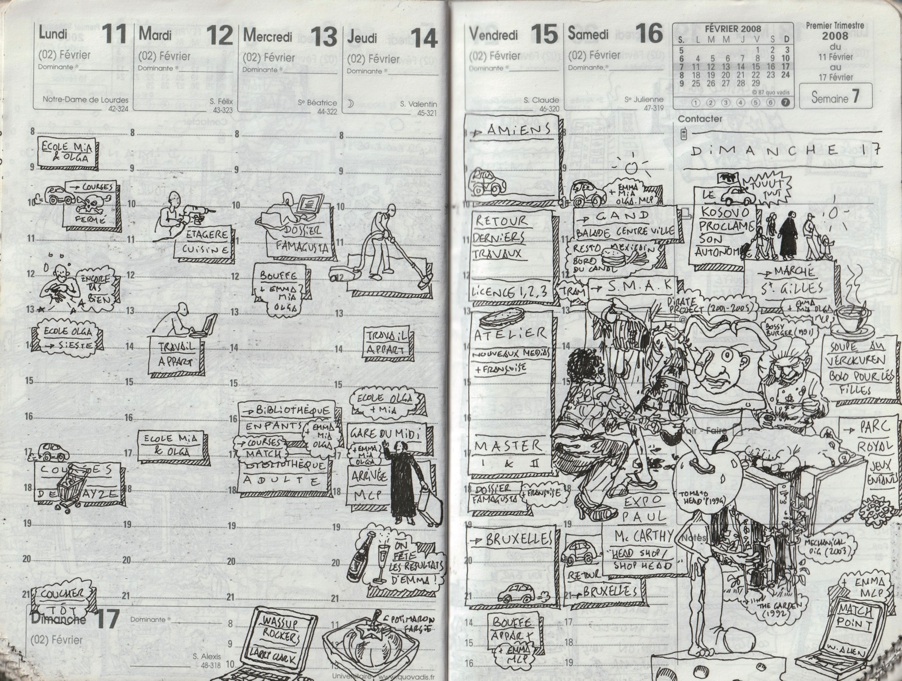 Lundi 11
(02) Février
Dominante
Notre-Dame de Lourdes
42-324
8
ECOLE MIA
& OLGA
9
→ COURSES
FERME
10
11
12
ENCORE
PAS
BIEN
13
ECOLE OLGA
→ SIESTE
14
15
16
17
COURSES
18
19
20
COUCHER
TÔT
21
Mardi 12
(02) Février
Dominante
S. Félix
43-323
ETAGERE
CUISINE
TRAVAIL
APPART
ECOLE MIA
& OLGA
Mercredi 13
(02) Février
Dominante
Ste Béatrice
44-322
DOSSIER
FAMAGUSTA
BOUFFE
EMMA
MIA
OLGA
→ BIBLIOTHÈQUE
ENFANTS
EMMA
MIA
OLGA
→ COURSES
MATCH
BIBLIOTHÈQUE
ADULTE
Jeudi 14
(02) Février
Dominante
S. Valentin
45-321
TRAVAIL
APPART
ECOLE OLGA
+ MIA
GARE DU MIDI
+ EMMA
MIA
OLGA
ARRIVÉE
MCP
ON
FETE
LES RÉSULTATS
D'EMMA!
Dimanche 17
(02) Février
Dominante
S. Alexis
48-318
8
9
10
WASSUP
ROCKERS
LARRY CLARK
POTIMARON
FARCIE
Vendredi 15
(02) Février
Dominante
S. Claude
46-320
→ AMIENS
RETOUR
DERNIERS
TRAVAUX
LICENCE 1, 2, 3
ATELIER
NOUVEAUX MEDIAS
+ FRANÇOISE
MASTER
I & II
DOSSIER
FAMAGUSTA
FRANÇOISE
→ BRUXELLES
BOUFFE
APPART
+ EMMA
MCP
Samedi 16
(02) Février
Dominante
Ste Julienne
47-319
+ EMMA
MIA
OLGA MCP
→ GAND
BALADE CENTRE VILLE
RESTO MEXICAIN
BORD
DU CANAL
TRAM
→ S.M.A.K
PIRATE
PROJECT (2001-2005)
BOSSY
BURGER (1991)
TOMATO
HEAD (1994)
EXPO
PAUL
Mc CARTHY
"HEAD SHOP/
SHOP HEAD"
MECHANICAL
PIG (2003)
THE GARDEN
(1992)
RETOUR
→ BRUXELLES
FÉVRIER 2008
S. L M M J V S D
5 1 2 3
6 4 5 6 7 8 9 10
7 11 12 13 14 15 16 17
8 18 19 20 21 22 23 24
9 25 26 27 28 29
Premier Trimestre
2008
du
11 Février
au
17 Février
Semaine 7
Contacter
DIMANCHE 17
TUUUT
TUUT
LE
KOSOVO
PROCLAME
SON
AUTONOMIE
→ MARCHÉ
St. GILLES
SOUPE AU
VERCKUREN
BOLO POUR LES
FILLES
→ PARC
ROYAL
JEUX
Notes
+ EMMA
MCP
MATCH
POINT
W. ALLEN